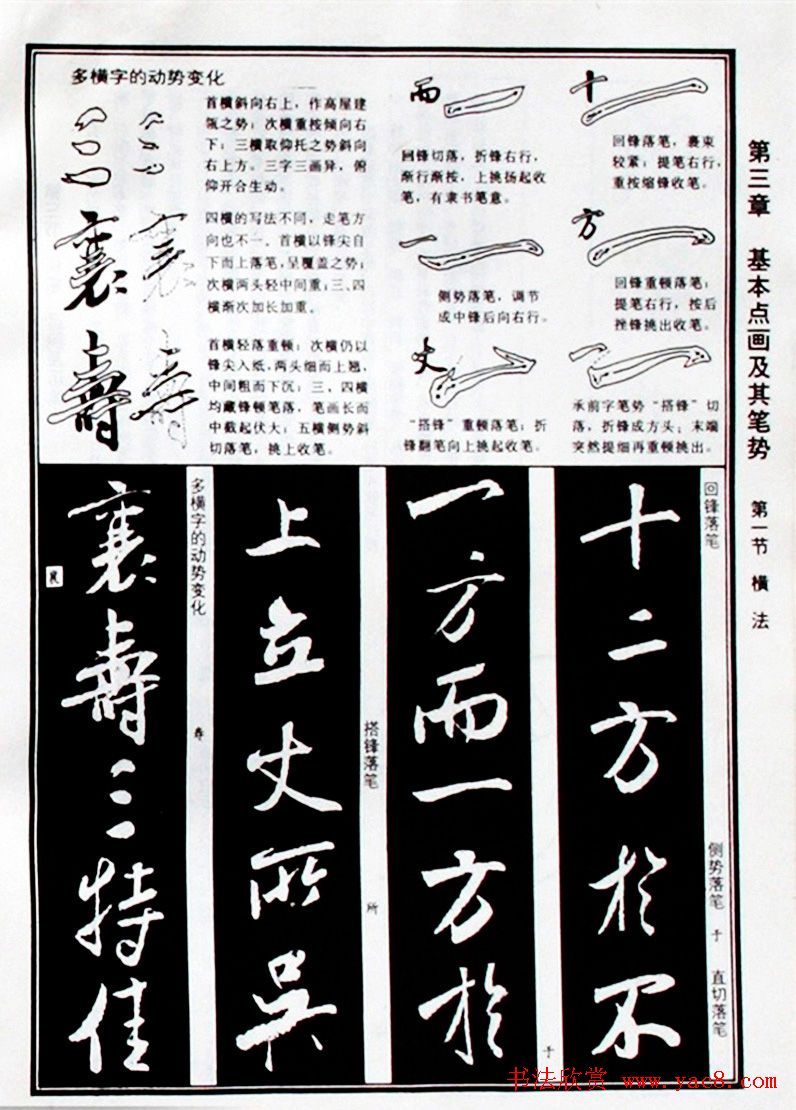 第三章 基本点画及其笔势 第一节 横法
多横字的动势变化
首横斜向右上，作高屋建
瓴之势；次横重按倾向右
下；三横取仰托之势斜向
右上方。三字三画异，俯
仰开合生动。
四横的写法不同，走笔方
向也不一。首横以锋尖自
下而上落笔，呈覆盖之势；
次横两头轻中间重；三、四
横渐次加长加重。
首横轻落重顿；次横仍以
锋尖入纸，两头细而上翘，
中间粗而下沉；三、四横
均藏锋顿笔落，笔画长而
中截起伏大；五横侧势斜
切落笔，挑上收笔。
三
襄
壽
而
回锋切落，折锋右行，
渐行渐按，上挑扬起收
笔，有隶书笔意。
一
侧势落笔，调节
成中锋后向右行。
丈
“搭锋”重顿落笔；折
锋翻笔向上挑起收笔。
十
回锋落笔，裹束
较紧；提笔右行，
重按缩锋收笔。
方
回锋重顿落笔；
提笔右行，按后
挫锋挑出收笔。
承前字笔势“搭锋”切
落，折锋成方头；末端
突然提细再重顿挑出。
回锋落笔
侧势落笔 于
直切落笔
十二方於不
于
一方而一方於
搭锋落笔
所
上立丈所吳
多横字的动势变化
寿
襄壽三特佳
襄
书法欣赏 www.yac8.com